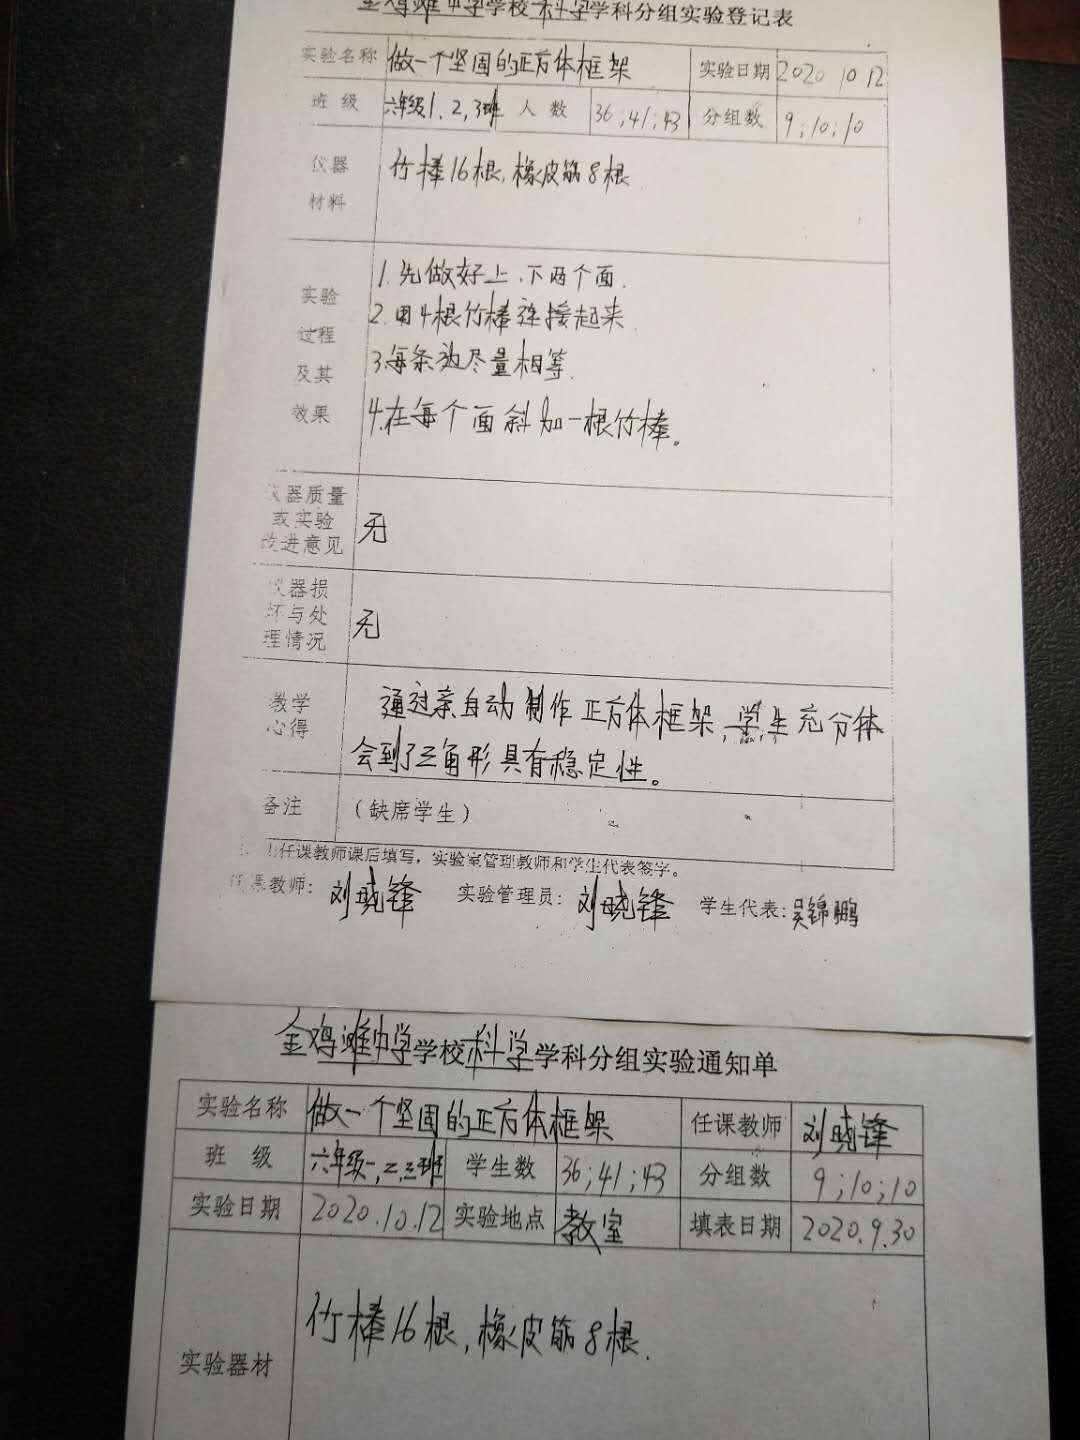 金鸡滩中学学校科学学科分组实验登记表
实验名称 做一个坚固的正方体框架 实验日期 2020 10 12
班级 六年级1、2、3班 人数 36;41;43 分组数 9;10;10
仪器材料 竹棒16根,橡皮筋8根.
实验过程及其效果
1.先做好上、下两个面.
2.用4根竹棒连接起来.
3.每条边尽量相等.
4.在每个面斜加一根竹棒。
仪器质量或实验改进意见 无
仪器损坏与处理情况 无
教学心得 通过亲自动制作正方体框架,学生充分体
会到了三角形具有稳定性。
备注 (缺席学生)
任课教师课后填写,实验室管理教师和学生代表签字。
任课教师: 刘晓锋 实验管理员: 刘晓锋 学生代表: 吴锦鹏
金鸡滩中学学校科学学科分组实验通知单
实验名称 做一个坚固的正方体框架 任课教师 刘晓锋
班级 六年级一,二,三班 学生数 36;41;43 分组数 9;10;10
实验日期 2020.10.12 实验地点 教室 填表日期 2020.9.30
实验器材 竹棒16根,橡皮筋8根.